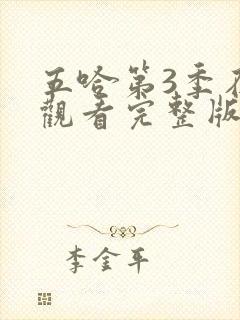 五哈第3季
觀看完整版
李金平